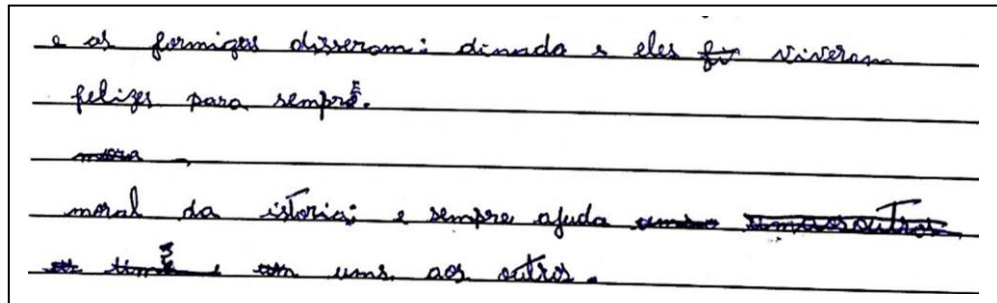 e as formigas disseram: dinada e eles fi viveram
felizes para sempre.
mora
moral da istoria: e sempre ajuda umso umaosoutros
e uns aos outros.